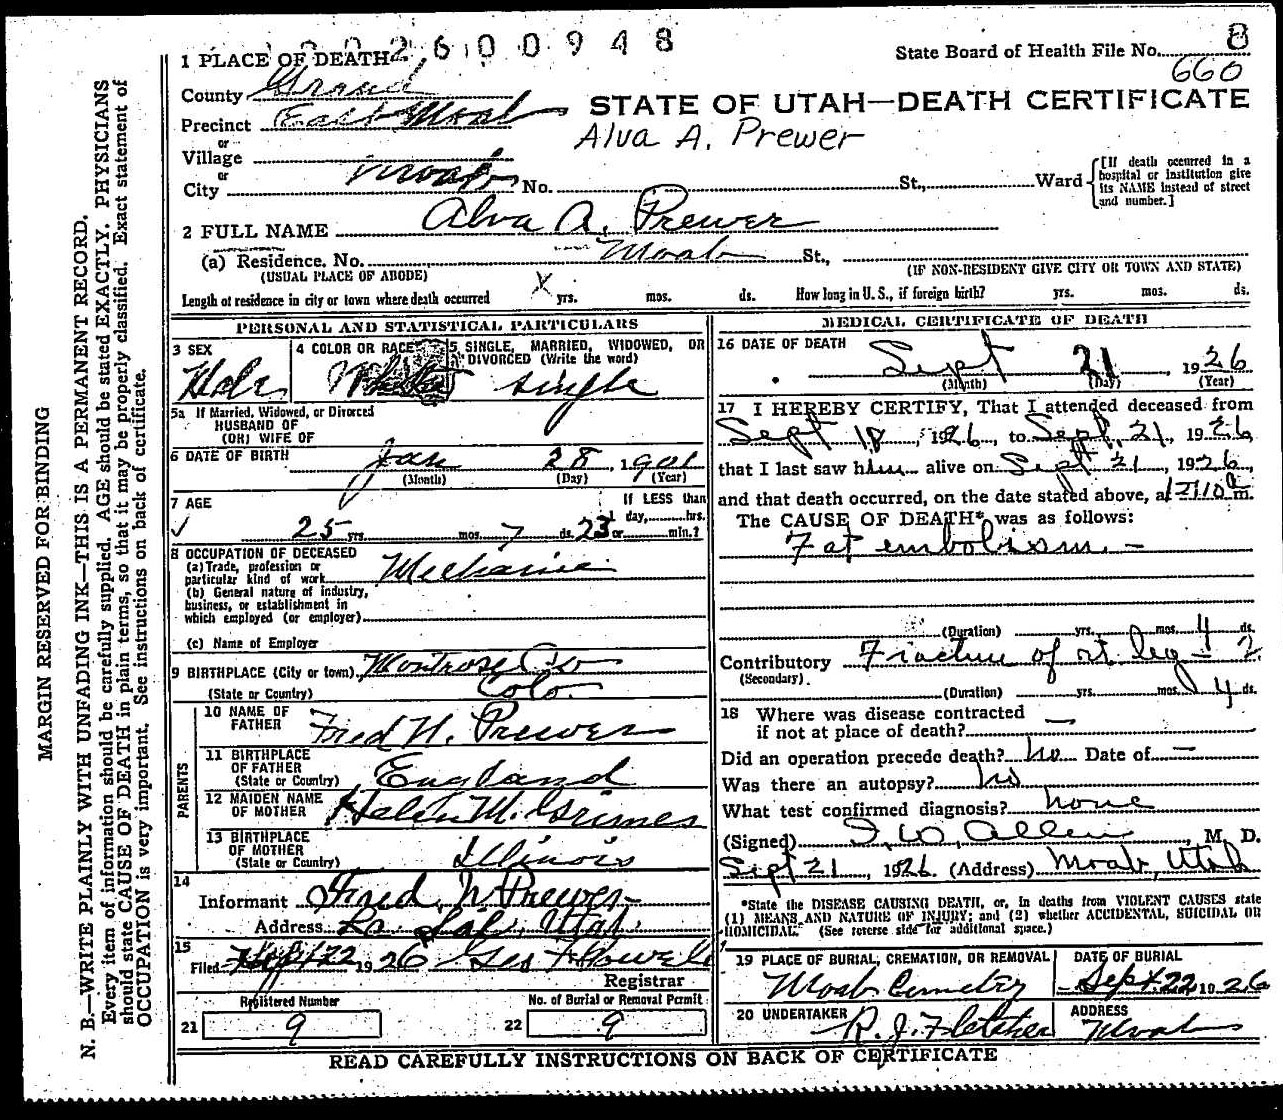 1 PLACE OF DEATH 2600948
State Board of Health File No. 8
660
County Grand
STATE OF UTAH—DEATH CERTIFICATE
Precinct East Moab
Alva A. Prewer
or
Village
or
City Moab No. St., Ward
[If death occurred in a hospital or institution give its NAME instead of street and number.]
2 FULL NAME Alva A. Prewer
(a) Residence. No. Moab St.,
(USUAL PLACE OF ABODE) (IF NON-RESIDENT GIVE CITY OR TOWN AND STATE)
Length of residence in city or town where death occurred X yrs. mos. ds. How long in U. S., if foreign birth? yrs. mos. ds.
PERSONAL AND STATISTICAL PARTICULARS
3 SEX Male
4 COLOR OR RACE White
5 SINGLE, MARRIED, WIDOWED, OR DIVORCED (Write the word) single
5a If Married, Widowed, or Divorced
HUSBAND OF
(OR) WIFE OF
6 DATE OF BIRTH Jan 28, 1901
(Month) (Day) (Year)
7 AGE If LESS than
1 day, hrs.
25 yrs. mos. 7 ds. 23 or min.?
8 OCCUPATION OF DECEASED
(a) Trade, profession or
particular kind of work Mechanic
(b) General nature of industry,
business, or establishment in
which employed (or employer)
(c) Name of Employer
9 BIRTHPLACE (City or town) Montrose Co
(State or Country) Colo.
PARENTS
10 NAME OF FATHER Fred N. Prewer
11 BIRTHPLACE OF FATHER (State or Country) England
12 MAIDEN NAME OF MOTHER Helen M. Grimes
13 BIRTHPLACE OF MOTHER (State or Country) Illinois
14
Informant Fred N Prewer
Address La Sal, Utah
15
Filed Sept 22 1926 Geo F Howell
Registrar
Registered Number
21 9
No. of Burial or Removal Permit
22 9
MEDICAL CERTIFICATE OF DEATH
16 DATE OF DEATH
Sept 21, 1926
(Month) (Day) (Year)
17 I HEREBY CERTIFY, That I attended deceased from
Sept 18, 1926, to Sept, 21, 1926
that I last saw him alive on Sept 21, 1926,
and that death occurred, on the date stated above, at 12:10 a m.
The CAUSE OF DEATH* was as follows:
Fat embolism. —
(Duration) yrs. mos. 4 ds.
Contributory Fracture of rt leg
(Secondary)
(Duration) yrs. mos. 4 ds.
18 Where was disease contracted
if not at place of death? —
Did an operation precede death? no Date of —
Was there an autopsy? no
What test confirmed diagnosis? none
(Signed) I. W. Allen, M. D.
Sept 21, 1926. (Address) Moab, Utah
*State the DISEASE CAUSING DEATH, or, in deaths from VIOLENT CAUSES state
(1) MEANS AND NATURE OF INJURY; and (2) whether ACCIDENTAL, SUICIDAL OR
HOMICIDAL. (See reverse side for additional space.)
19 PLACE OF BURIAL, CREMATION, OR REMOVAL
Moab Cemetry
DATE OF BURIAL
Sept. 22 1926
20 UNDERTAKER
R. J. Fletcher
ADDRESS
Moab
READ CAREFULLY INSTRUCTIONS ON BACK OF CERTIFICATE
MARGIN RESERVED FOR BINDING
N. B.—WRITE PLAINLY WITH UNFADING INK—THIS IS A PERMANENT RECORD.
Every item of information should be carefully supplied. AGE should be stated EXACTLY. PHYSICIANS
should state CAUSE OF DEATH in plain terms, so that it may be properly classified. Exact statement of
OCCUPATION is very important. See instructions on back of certificate.